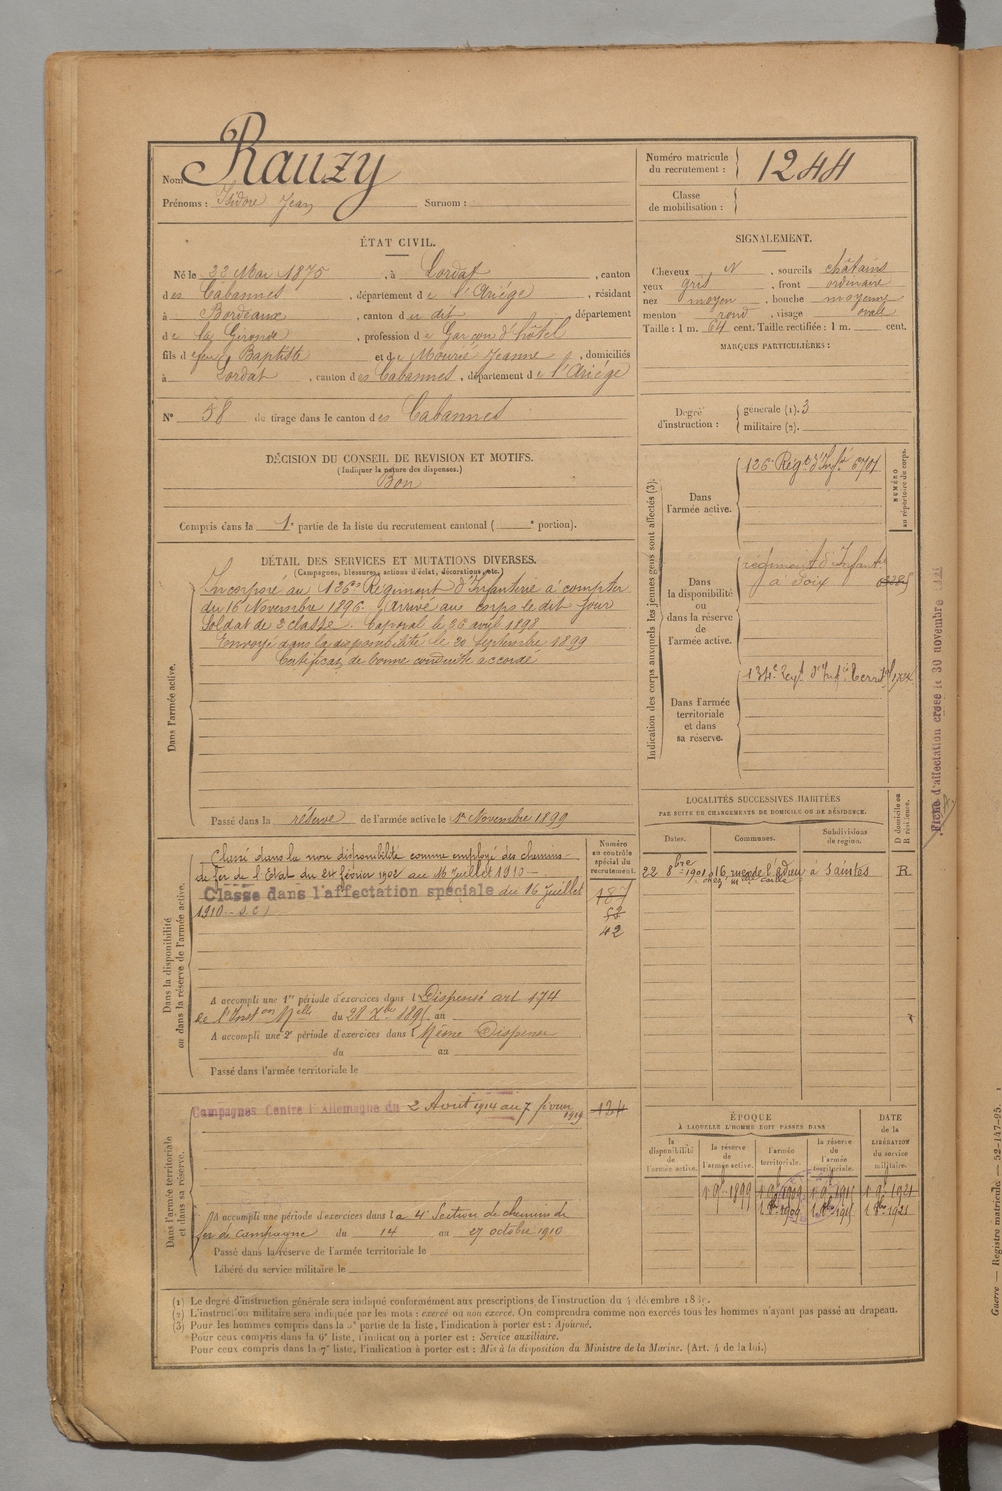 Nom Rauzy
Prénoms : Isidore Jean Surnom :
Numéro matricule du recrutement : 1244
Classe de mobilisation :
ÉTAT CIVIL.
Né le 22 Mai 1875, à Lordat, canton
des Cabannes, département de l'Ariége, résidant
à Bordeaux, canton du dit département
de la Gironde, profession de Garçon d'hôtel
fils de feu Baptiste et de Mourié Jeanne, domiciliés
à Lordat, canton des Cabannes, département de l'Ariége
N° 58 de tirage dans le canton des Cabannes
SIGNALEMENT.
Cheveux N, sourcils châtains
yeux gris, front ordinaire
nez moyen, bouche moyenne
menton rond, visage ovale
Taille : 1 m. 64 cent. Taille rectifiée : 1 m. cent.
MARQUES PARTICULIÈRES :
Degré d'instruction : générale (1). 3
militaire (2).
DÉCISION DU CONSEIL DE REVISION ET MOTIFS.
(Indiquer la nature des dispenses.)
Bon
Compris dans la 1e partie de la liste du recrutement cantonal ( e portion).
DÉTAIL DES SERVICES ET MUTATIONS DIVERSES.
(Campagnes, blessures, actions d'éclat, décorations, etc.)
Dans l'armée active.
Incorporé au 126e Régiment d'Infanterie à compter
du 16 Novembre 1896. Arrivé au corps le dit jour
Soldat de 2e classe. Caporal le 26 avril 1898
Envoyé dans la disponibilité le 20 Septembre 1899
Certificat de bonne conduite accordé
Passé dans la réserve de l'armée active le 1er Novembre 1899
Indication des corps auxquels les jeunes gens sont affectés (3).
NUMÉRO au répertoire du corps.
Dans l'armée active.
126e Régt d'Infie
Dans la disponibilité ou dans la réserve de l'armée active.
régiment d'Infant
à Foix
Dans l'armée territoriale et dans sa réserve.
134e Regt d'Infie Territ
Fiche d'affectation créée le 30 novembre
Dans la disponibilité ou dans la réserve de l'armée active.
Numéro au contrôle spécial du recrutement.
Classé dans la non disponibilité comme employé des chemins
de fer de l'Etat du 24 février 1902 au 16 Juillet 1910 –
Classé dans l'affectation spéciale du 16 Juillet
1910
187
52
42
A accompli une 1re période d'exercices dans l Dispensé art 174
de l'Inston Mlle du 28 Xbre 1895 au
A accompli une 2e période d'exercices dans l Même Dispense
du au
Passé dans l'armée territoriale le
LOCALITÉS SUCCESSIVES HABITÉES
PAR SUITE DE CHANGEMENTS DE DOMICILE OU DE RÉSIDENCE.
Dates. Communes. Subdivisions de région. D domicile ou R résidence.
22 8bre 1901 16, rue de à Saintes R
Dans l'armée territoriale et dans sa réserve.
Campagnes Contre l'Allemagne du 2 Août 1914 au 7 février 1919
124
A accompli une période d'exercices dans la 4e Section de chemins de
fer de campagne du 14 au 27 octobre 1910
Passé dans la réserve de l'armée territoriale le
Libéré du service militaire le
ÉPOQUE
À LAQUELLE L'HOMME DOIT PASSER DANS
la disponibilité de l'armée active. la réserve de l'armée active. l'armée territoriale. la réserve de l'armée territoriale. DATE de la LIBÉRATION du service militaire.
1er 9bre 1899 1er 9bre 1909 1er 9bre 1915 1er 9bre 1921
1er 8bre 1909 1er 8bre 1915 1er 8bre 1921
(1) Le degré d'instruction générale sera indiqué conformément aux prescriptions de l'instruction du 4 décembre 18
(2) L'instruction militaire sera indiquée par les mots : exercé ou non exercé. On comprendra comme non exercés tous les hommes n'ayant pas passé au drapeau.
(3) Pour les hommes compris dans la 5e partie de la liste, l'indication à porter est : Ajourné.
Pour ceux compris dans la 6e liste, l'indication à porter est : Service auxiliaire.
Pour ceux compris dans la 7e liste, l'indication à porter est : Mis à la disposition du Ministre de la Marine. (Art. 4 de la loi.)
Guerre — Registre matricule. — 52-147-95.